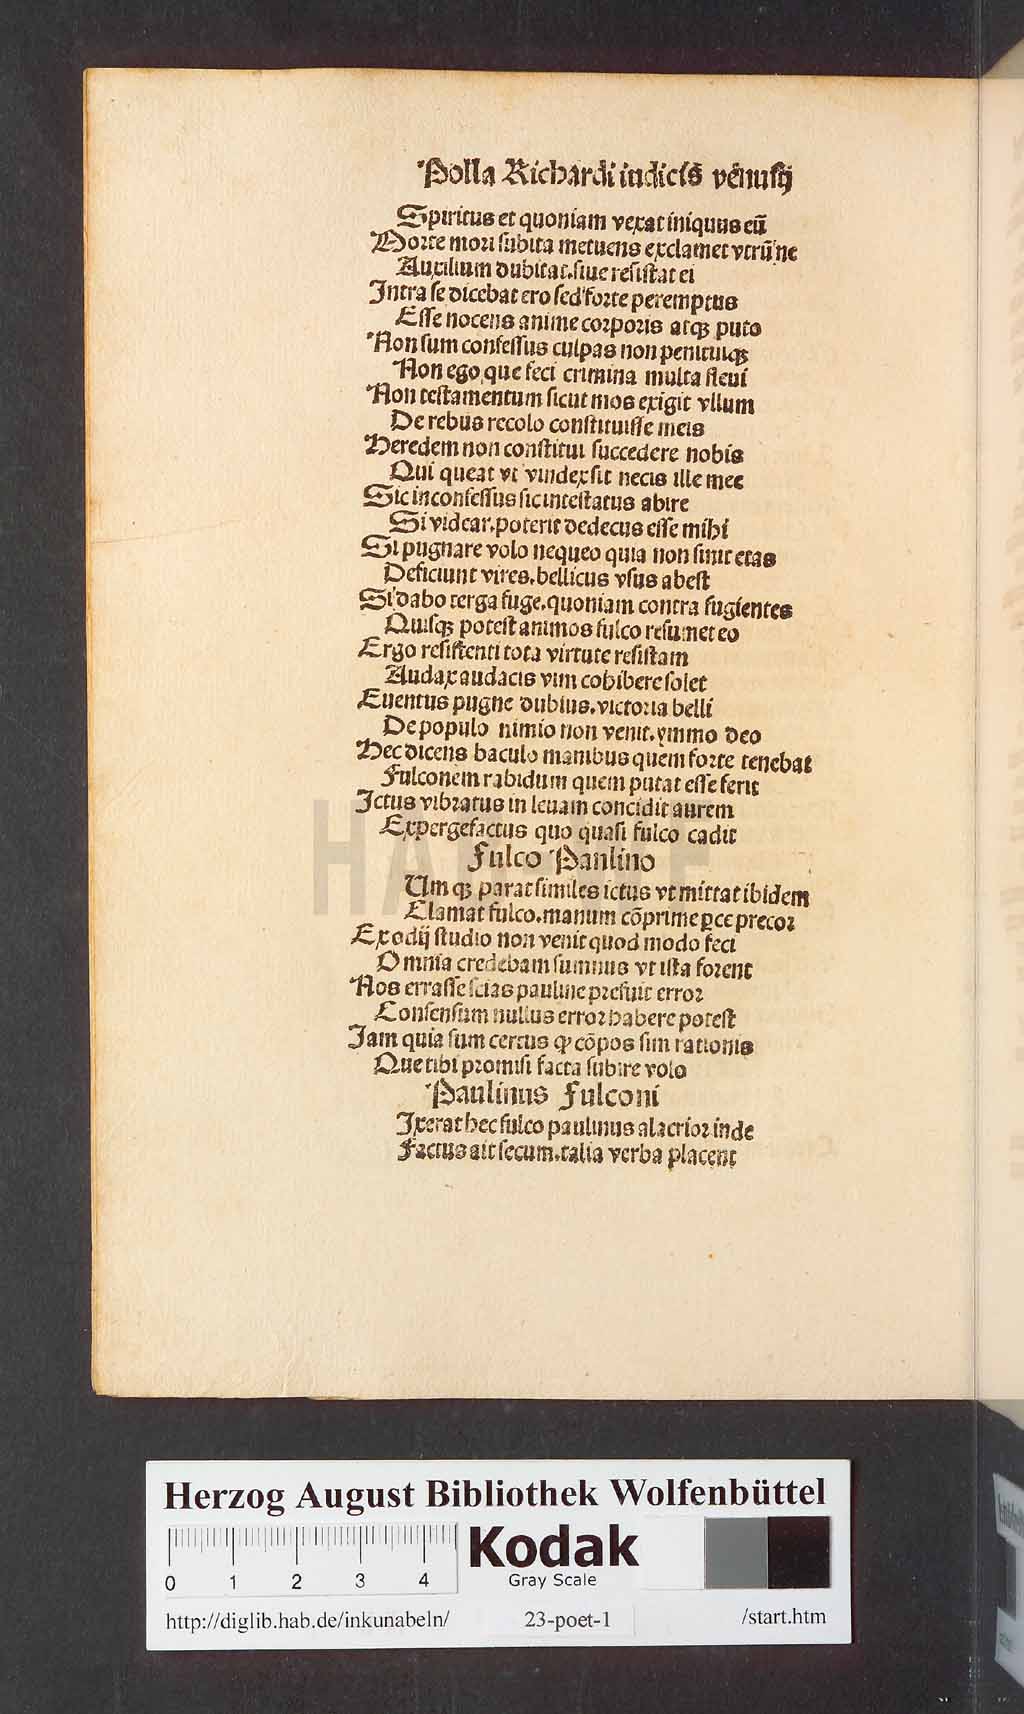 Polla Richardi iudicis venusij
Spiritus et quoniam vexat iniquus eū
Morte mori subita metuens exclamet vtrū ne
Auxilium dubitat. siue resistat ei
Intra se dicebat ero sed forte peremptus
Esse nocens anime corporis atqꝫ puto
Non sum confessus culpas non penituiqꝫ
Non ego que feci crimina multa fleui
Non testamentum sicut mos exigit vllum
De rebus recolo constituisse meis
Heredem non constitui succedere nobis
Qui queat vt vindex sit necis ille mee
Sic inconfessus sic intestatus abire
Si videar. poterit dedecus esse mihi
Si pugnare volo nequeo quia non sinit etas
Deficiunt vires. bellicus vsus abest
Si dabo terga fuge. quoniam contra fugientes
Quisqꝫ potest animos fulco resumet eo
Ergo resistenti tota virtute resistam
Audax audacis vim cohibere solet
Euentus pugne dubius. victoria belli
De populo nimio non venit. ymmo deo
Hec dicens baculo manibus quem forte tenebat
Fulconem rabidum quem putat esse ferit
Ictus vibratus in leuam concidit aurem
Expergefactus quo quasi fulco cadit
Fulco Paulino
Um qꝫ parat similes ictus vt mittat ibidem
Clamat fulco. manum cōprime ꝑce precor
Ex odij studio non venit quod modo feci
Omnia credebam sumnus vt ista forent
Nos errasse scias pauline prefuit error
Consensum nullus error habere potest
Jam quia sum certus ꝙ cōpos sim rationis
Que tibi promisi facta subire volo
Paulinus Fulconi
Ixerat hec fulco paulinus alacrior inde
Factus ait secum. talia verba placent
HAB WF
Herzog August Bibliothek Wolfenbüttel
0 1 2 3 4
Kodak
Gray Scale
http://diglib.hab.de/inkunabeln/ 23-poet-1 /start.htm